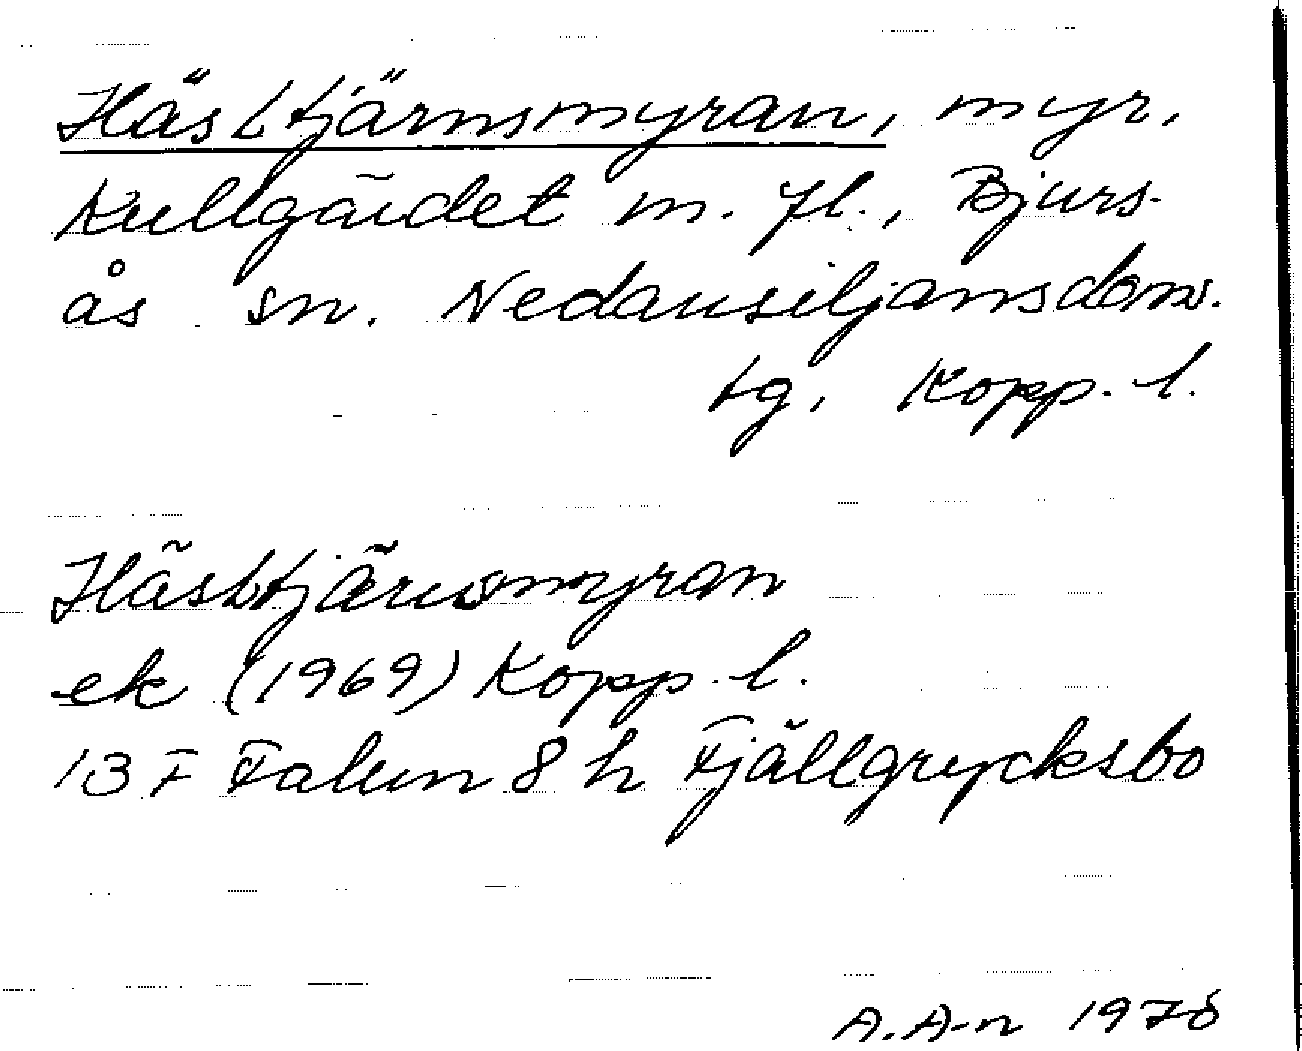 Hästtjärnsmyran, myr,
Kullgärdet m. fl., Bjurs-
ås sn. Nedansiljansdoms.
tg, Kopp. l.
Hästtjärnsmyran
ek (1969) Kopp. l.
13 F Falun 8 h Fjällgrycksbo
A. A-n 1978